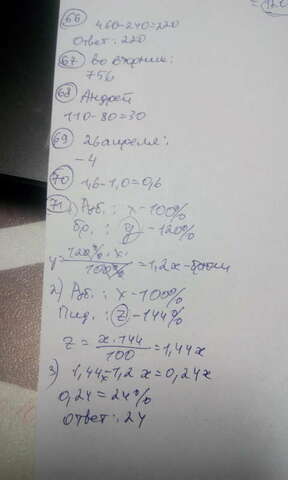 66 460-240=220
Ответ: 220
67 во вторник:
756
68 Андрей
110-80=30
69 26 апреля:
-4
70 1,6-1,0=0,6
71 1) Руб.: x-100%
бр.: y-120%
y=120%·x/100%=1,2x-
2) Руб.: x-100%
Пид.: z-144%
z=x·144/100=1,44x
3) 1,44x-1,2x=0,24x
0,24=24%
Ответ: 24